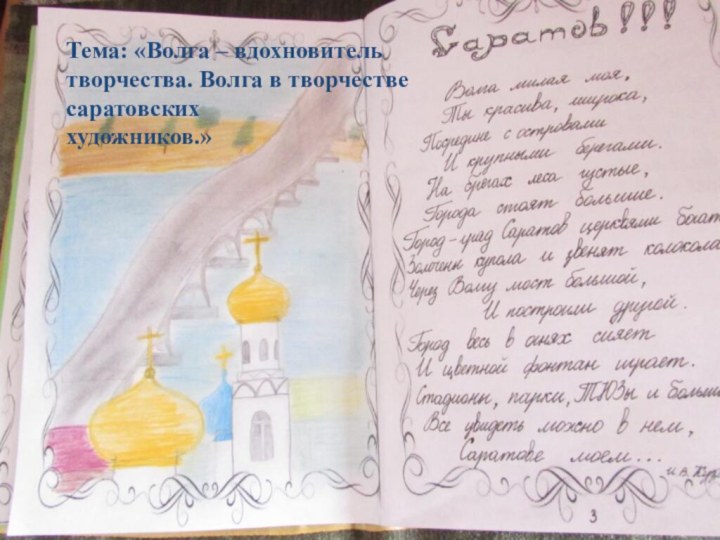 Тема: «Волга – вдохновитель
творчества. Волга в творчестве
саратовских
художников.»
Саратов!!!
Волга милая моя,
Ты красива, широка,
Посредине с островами
И крупными берегами.
На брегах леса густые,
Города стоят большие.
Город-град Саратов церквями богат
Золочены купола и звенят колокола
Через Волгу мост большой,
И построили другой.
Город весь в огнях сияет
И цветной фонтан играет.
Стадионы, парки, ТЮЗы и больш
Все увидеть можно в нем,
Саратове моем...
И.В.
3